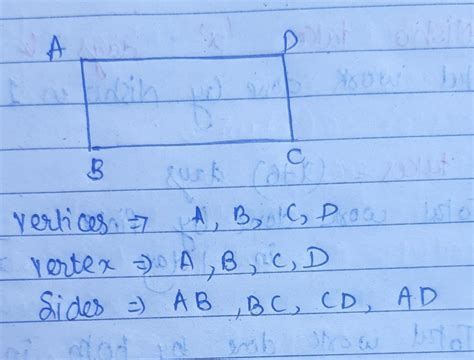 A D
B C
vertices ⇒ A, B, C, D
vertex ⇒ A, B, C, D
Sides ⇒ AB, BC, CD, AD